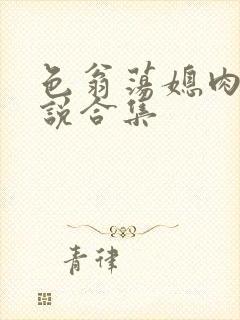 色翁荡媳肉
说合集
青律